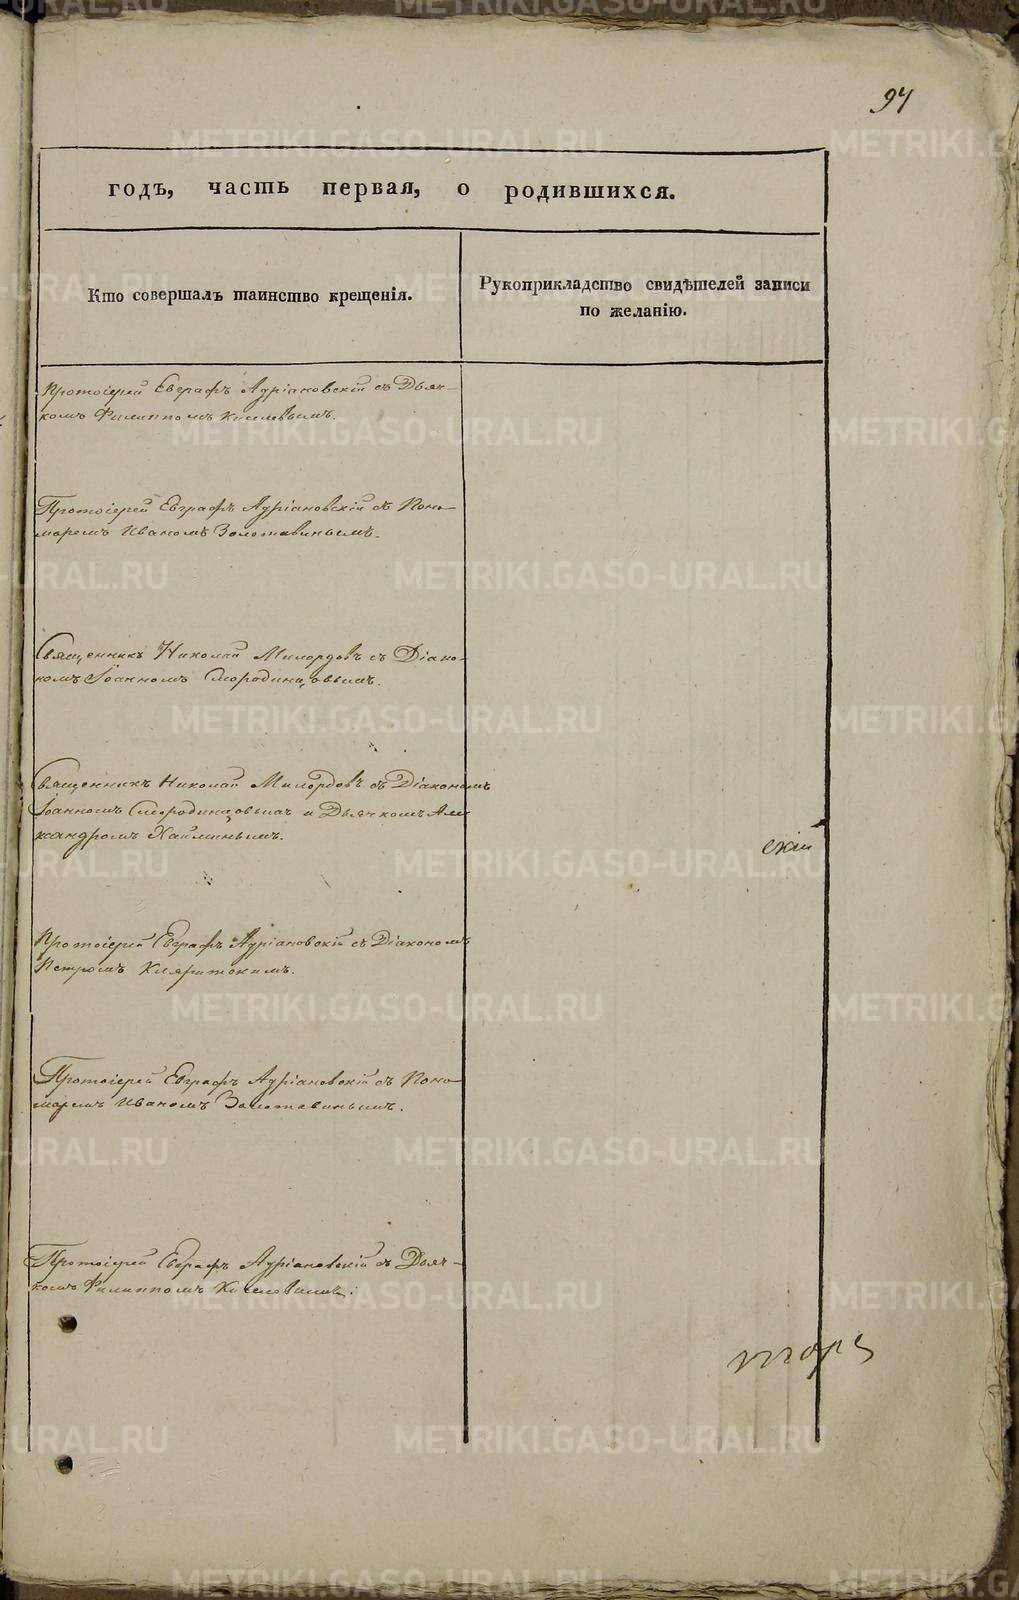 94
годъ, часть первая, о родившихся.
Кто совершалъ таинство крещенія.
Рукоприкладство свидѣтелей записи
по желанію.
Протоіерей Евграфъ Адріановскій съ Дьяч-
комъ Филиппомъ Киселевымъ.
Протоіерей Евграфъ Адріановскій съ Поно-
маремъ Иваномъ Золотавинымъ.
Священникъ Николай Милордовъ съ Діако-
номъ Іоанномъ Смородинцовымъ.
Священникъ Николай Милордовъ съ Діакономъ
Іоанномъ Смородинцовымъ и Дьячкомъ Але
ксандромъ Хайминымъ.
скій
Протоіерей Евграфъ Адріановскій съ Діакономъ
Петромъ
Протоіерей Евграфъ Адріановскій съ Поно-
маремъ Иваномъ Золотавинымъ.
Протоіерей Евграфъ Адріановскій съ Дьяч-
комъ Филиппомъ Киселевымъ.
METRIKI.GASO-URAL.RU